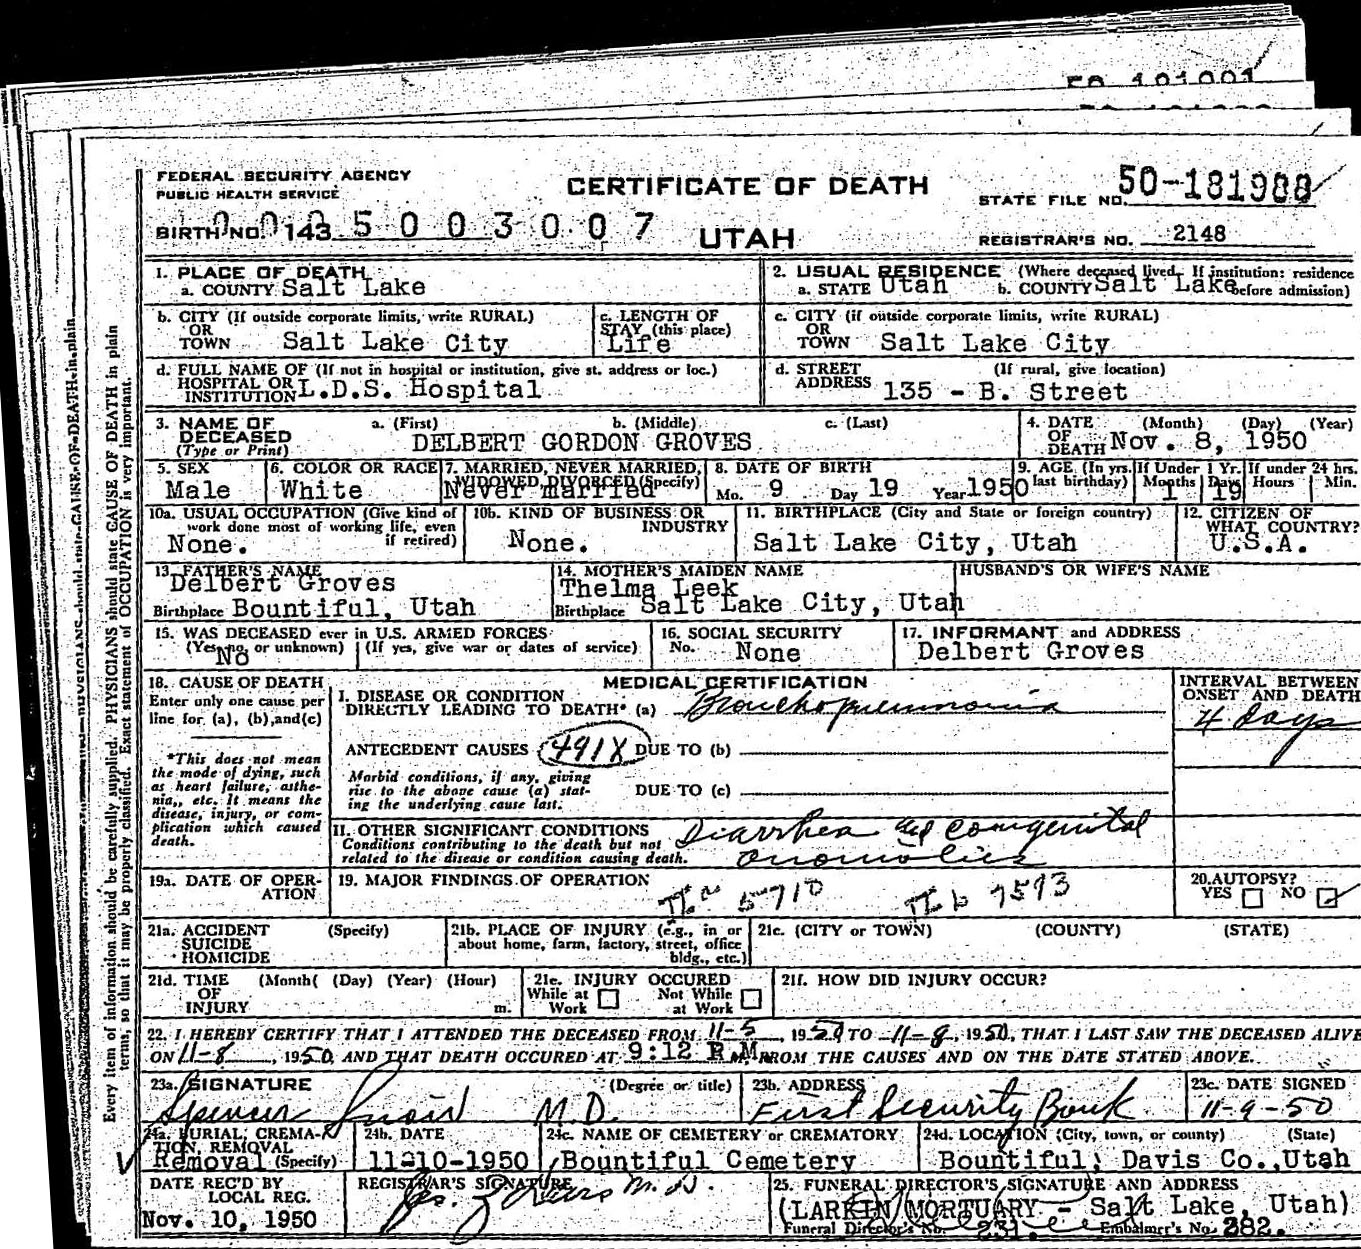 50 181991
FEDERAL SECURITY AGENCY
PUBLIC HEALTH SERVICE
CERTIFICATE OF DEATH
STATE FILE NO. 50-181988
BIRTH NO. 143 5 0 0 3 0 0 7
UTAH
REGISTRAR'S NO. 2148
1. PLACE OF DEATH
a. COUNTY Salt Lake
2. USUAL RESIDENCE (Where deceased lived. If institution: residence before admission)
a. STATE Utah b. COUNTY Salt Lake
b. CITY (If outside corporate limits, write RURAL) OR TOWN Salt Lake City
c. LENGTH OF STAY (this place) Life
c. CITY (if outside corporate limits, write RURAL) OR TOWN Salt Lake City
d. FULL NAME OF (If not in hospital or institution, give st. address or loc.) HOSPITAL OR INSTITUTION L.D.S. Hospital
d. STREET ADDRESS (If rural, give location) 135 - B. Street
3. NAME OF DECEASED (Type or Print) a. (First) b. (Middle) c. (Last)
DELBERT GORDON GROVES
4. DATE OF DEATH (Month) (Day) (Year) Nov. 8, 1950
5. SEX Male
6. COLOR OR RACE White
7. MARRIED, NEVER MARRIED, WIDOWED, DIVORCED (Specify) Never married
8. DATE OF BIRTH Mo. 9 Day 19 Year 1950
9. AGE (In yrs. last birthday) If Under 1 Yr. Months 1 Days 19 If under 24 hrs. Hours Min.
10a. USUAL OCCUPATION (Give kind of work done most of working life, even if retired) None.
10b. KIND OF BUSINESS OR INDUSTRY None.
11. BIRTHPLACE (City and State or foreign country) Salt Lake City, Utah
12. CITIZEN OF WHAT COUNTRY? U.S.A.
13. FATHER'S NAME Delbert Groves
Birthplace Bountiful, Utah
14. MOTHER'S MAIDEN NAME Thelma Leek
Birthplace Salt Lake City, Utah
HUSBAND'S OR WIFE'S NAME
15. WAS DECEASED ever in U.S. ARMED FORCES
(Yes, no, or unknown) No (If yes, give war or dates of service)
16. SOCIAL SECURITY No. None
17. INFORMANT and ADDRESS Delbert Groves
18. CAUSE OF DEATH
Enter only one cause per line for (a), (b), and (c)
*This does not mean the mode of dying, such as heart failure, asthenia, etc. It means the disease, injury, or complication which caused death.
MEDICAL CERTIFICATION
I. DISEASE OR CONDITION DIRECTLY LEADING TO DEATH* (a) Bronchopneumonia
INTERVAL BETWEEN ONSET AND DEATH
4 days
ANTECEDENT CAUSES 491X DUE TO (b)
Morbid conditions, if any, giving rise to the above cause (a) stating the underlying cause last.
DUE TO (c)
II. OTHER SIGNIFICANT CONDITIONS
Conditions contributing to the death but not related to the disease or condition causing death.
Diarrhea and Congenital
anomalies
19a. DATE OF OPERATION
19. MAJOR FINDINGS OF OPERATION
IIa 5710 IIb 7593
20. AUTOPSY? YES NO
21a. ACCIDENT SUICIDE HOMICIDE (Specify)
21b. PLACE OF INJURY (e.g., in or about home, farm, factory, street, office bldg., etc.)
21c. (CITY or TOWN) (COUNTY) (STATE)
21d. TIME OF INJURY (Month) (Day) (Year) (Hour) m.
21e. INJURY OCCURED While at Work Not While at Work
21f. HOW DID INJURY OCCUR?
22. I HEREBY CERTIFY THAT I ATTENDED THE DECEASED FROM 11-5, 1950 TO 11-8, 1950, THAT I LAST SAW THE DECEASED ALIVE
ON 11-8, 1950, AND THAT DEATH OCCURED AT 9:12 P.M. FROM THE CAUSES AND ON THE DATE STATED ABOVE.
23a. SIGNATURE (Degree or title) Spencer Snow M.D.
23b. ADDRESS First Security Bank
23c. DATE SIGNED 11-9-50
24a. BURIAL, CREMATION, REMOVAL (Specify) Removal
24b. DATE 11-10-1950
24c. NAME OF CEMETERY or CREMATORY Bountiful Cemetery
24d. LOCATION (City, town, or county) (State) Bountiful, Davis Co., Utah
DATE REC'D BY LOCAL REG. Nov. 10, 1950
REGISTRAR'S SIGNATURE M.D.
25. FUNERAL DIRECTOR'S SIGNATURE AND ADDRESS
(LARKIN MORTUARY - Salt Lake, Utah)
Funeral Director's No. 231. Embalmer's No. 282.
Every item of information should be carefully supplied. PHYSICIANS should state CAUSE OF DEATH in plain
terms, so that it may be properly classified. Exact statement of OCCUPATION is very important.
PHYSICIANS should state CAUSE OF DEATH in plain